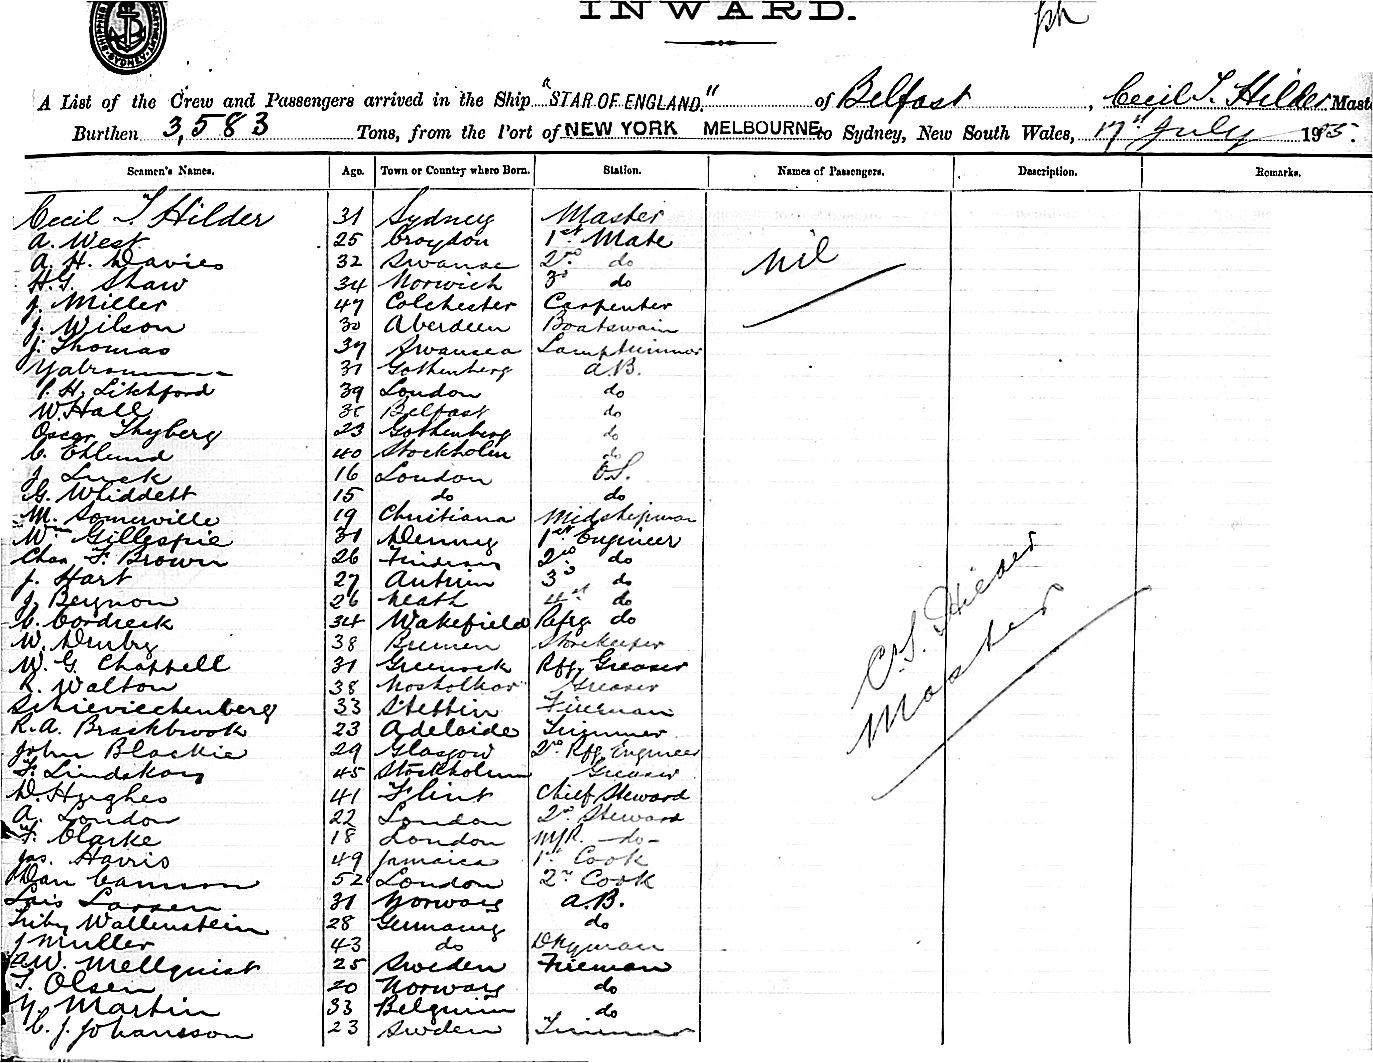 INWARD.
A List of the Crew and Passengers arrived in the Ship "STAR OF ENGLAND." of Belfast, Cecil T. Hilder Mast
Burthen 3,583 Tons, from the Port of NEW YORK MELBOURNE to Sydney, New South Wales, 17th July 19
Seamen's Names. Age. Town or Country where Born. Station. Names of Passengers. Description. Remarks.
Cecil T. Hilder 31 Sydney Master
A. West 25 Croydon 1st Mate
A. H. Davies 32 Swansea 2nd do
H.G. Shaw 34 Norwich 3d do
nil
J. Miller 47 Colchester Carpenter
J. Wilson 30 Aberdeen Boatswain
J. Thomas 39 Swansea Lamptrimmer
31 Gothenberg A.B.
P. H. Litchford 39 London do
W. Hall Belfast do
Oscar Thyberg 23 Gothenberg do
C. Ehlund 40 Stockholm do
J. Luck 16 London O.S.
G. Whiddett 15 do do
M. Somerville 19 Christiana Midshipman
Wm Gillespie 31 Denny 1st Engineer
Chas F. Brown 26 2nd do
J. Hart 27 Antrim 3d do
J. 26 Neath 4th do
C. Cordreck 34 Wakefield Refrg do
W. Denby 38 Bremen Storekeeper
W. G Chappell 31 Greenock Rfg. Greaser
R. Walton 38 Greaser
Schievischenberg 33 Stettin Fireman
R.A. Brackbrook 23 Adelaide Trimmer
John Blackie 29 Glasgow 2nd Rfg. Engineer
F. Lindskog 45 Stockholm Greaser
D. Hughes 41 Flint Chief Steward
A. London 22 London 2nd Steward
F. Clarke 18 London do
Jas. Harris 49 Jamaica 1st Cook
Dan Cannon 52 London 2nd Cook
Larsen 31 Norway A.B.
Wallenstein 28 Germany do
J Muller 43 do Dkyman
A.W. Mellquist 25 Sweden Fireman
T. Olsen 20 Norway do
Martin 33 Belguim do
C. J. Johansson 23 Sweden Trimmer
C.T. Hilder
Master